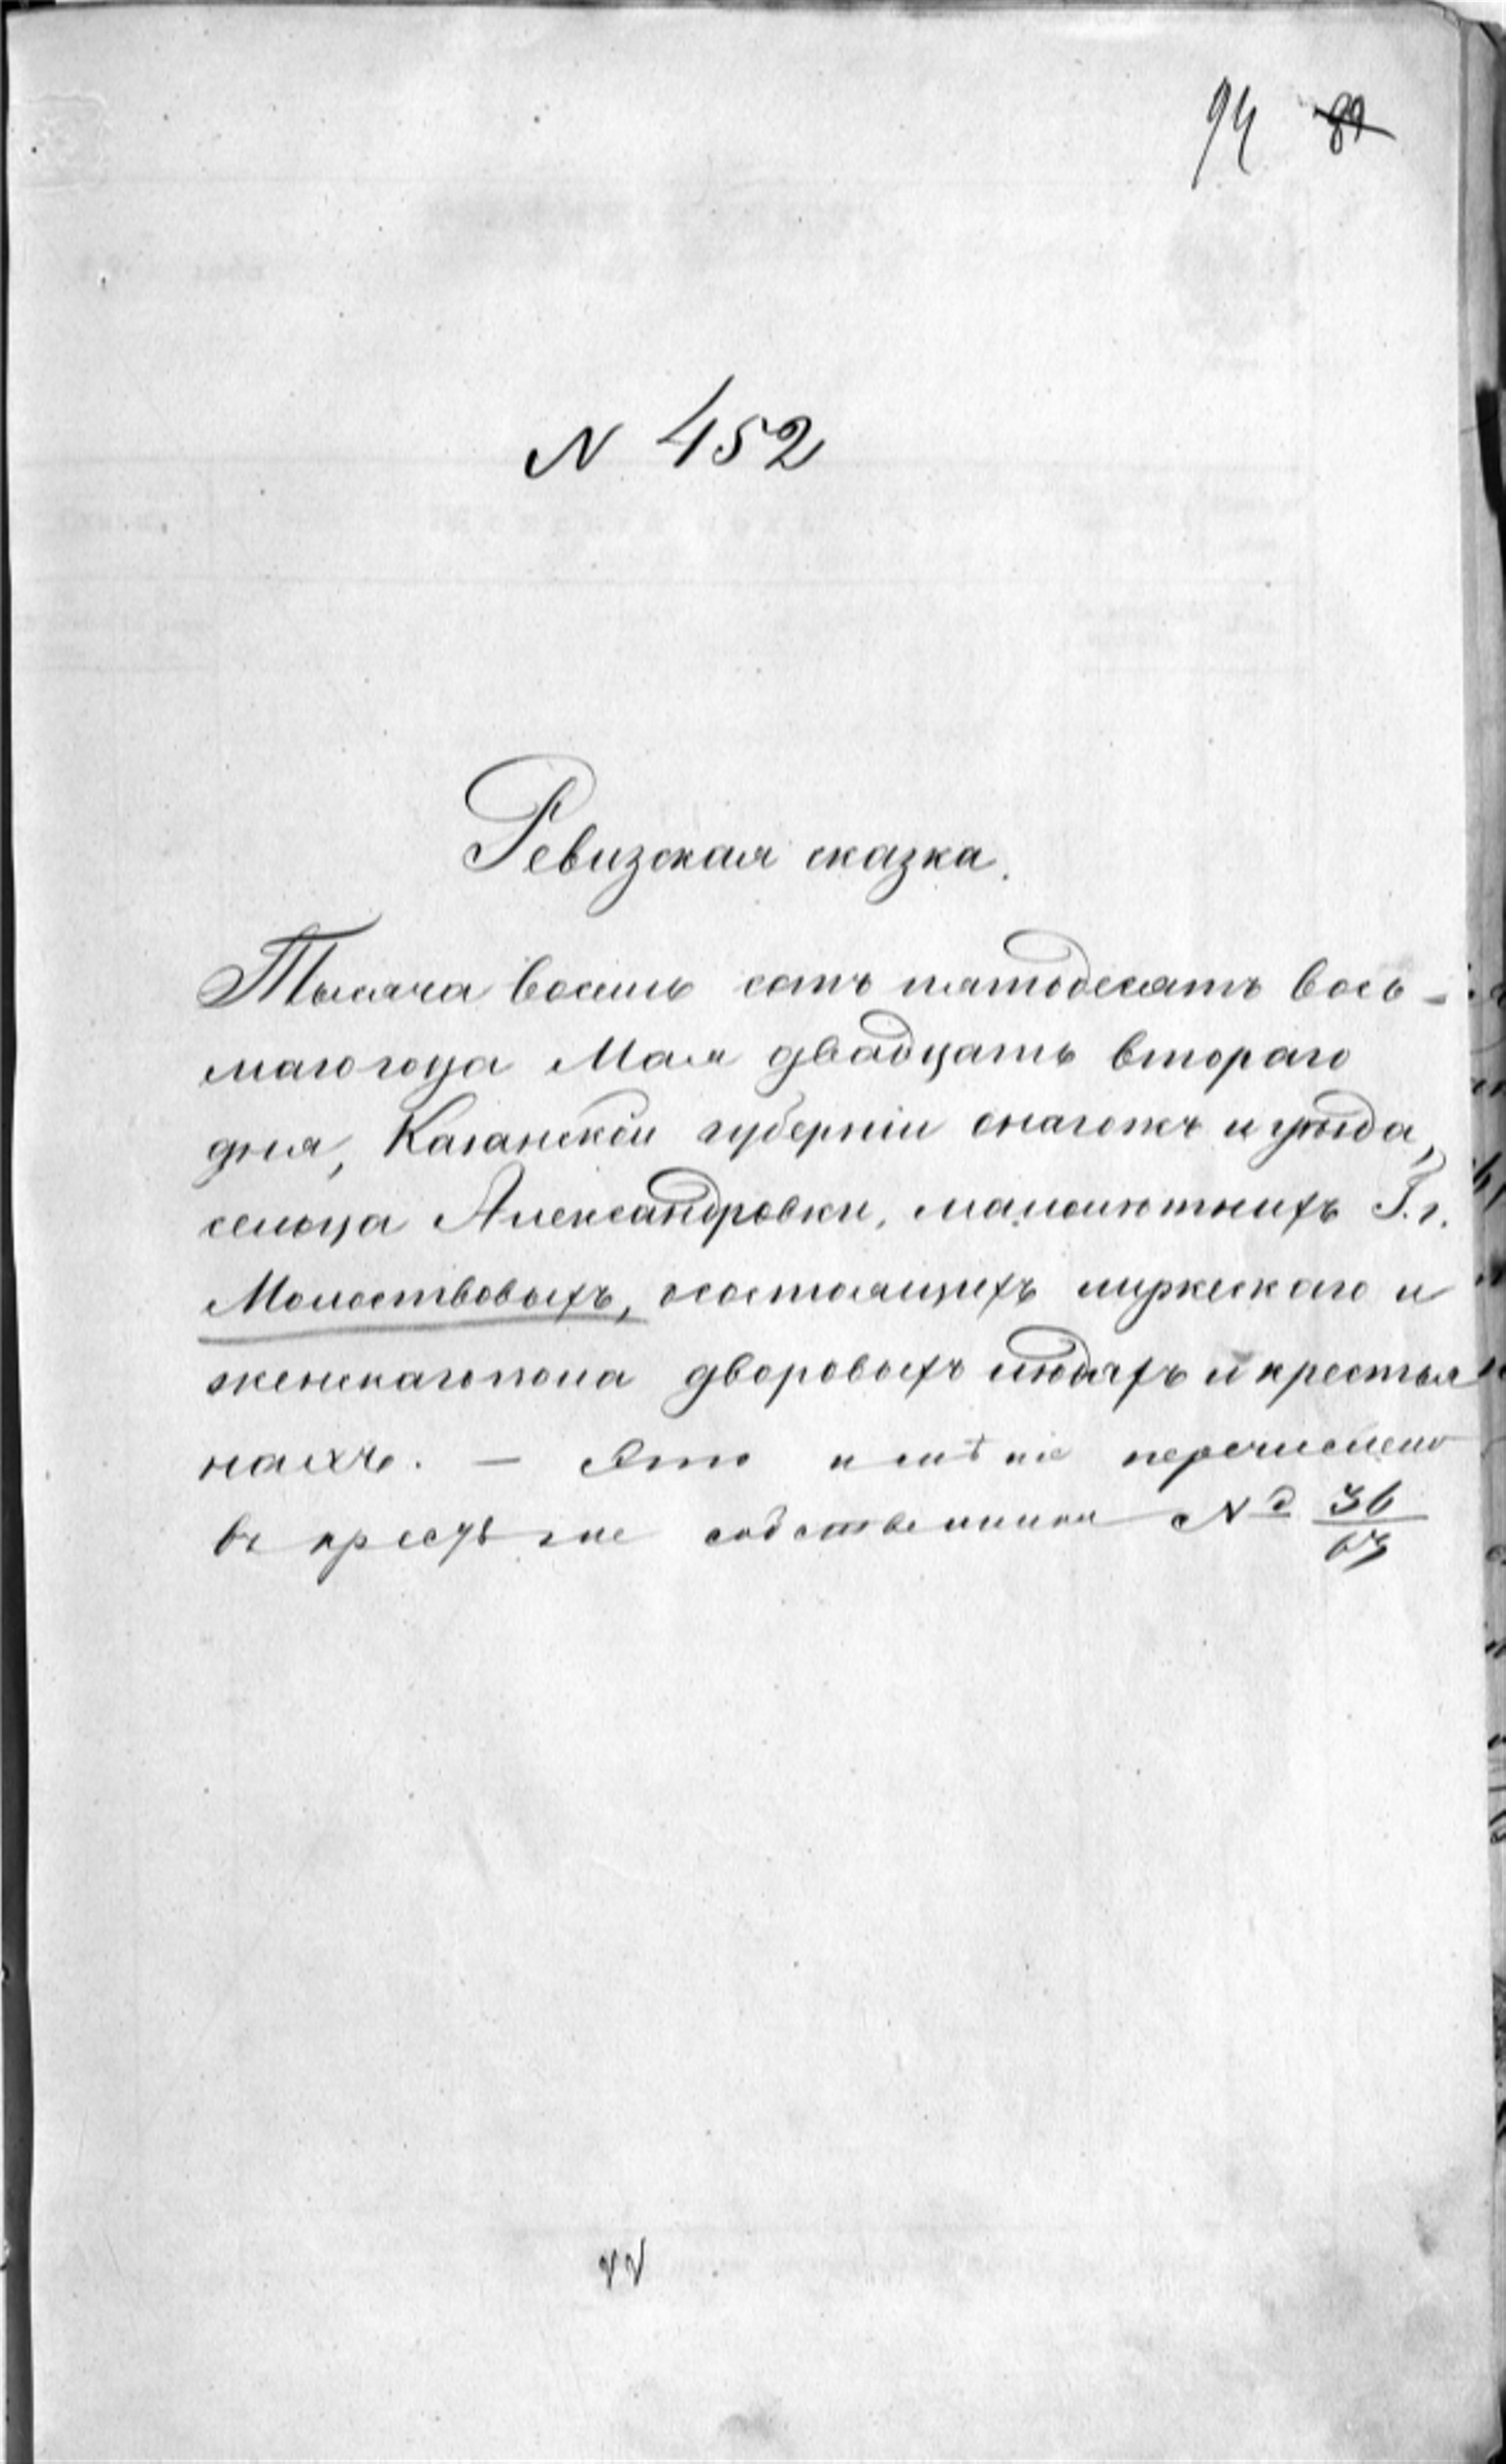 94 89
N 452
Ревизская сказка.
Тысяча восемь сотъ пятьдесятъ вось-
маго года Мая двадцать втораго
дня, Казанской губерніи онагожъ уѣзда,
сельца Александровки, малолѣтнихъ Г.г.
Молоствовыхъ, о состоящихъ мужескаго и
женскаго пола дворовыхъ людяхъ и крестья
нахъ. — Это имѣніе перечислено
въ крестьяне собственники №